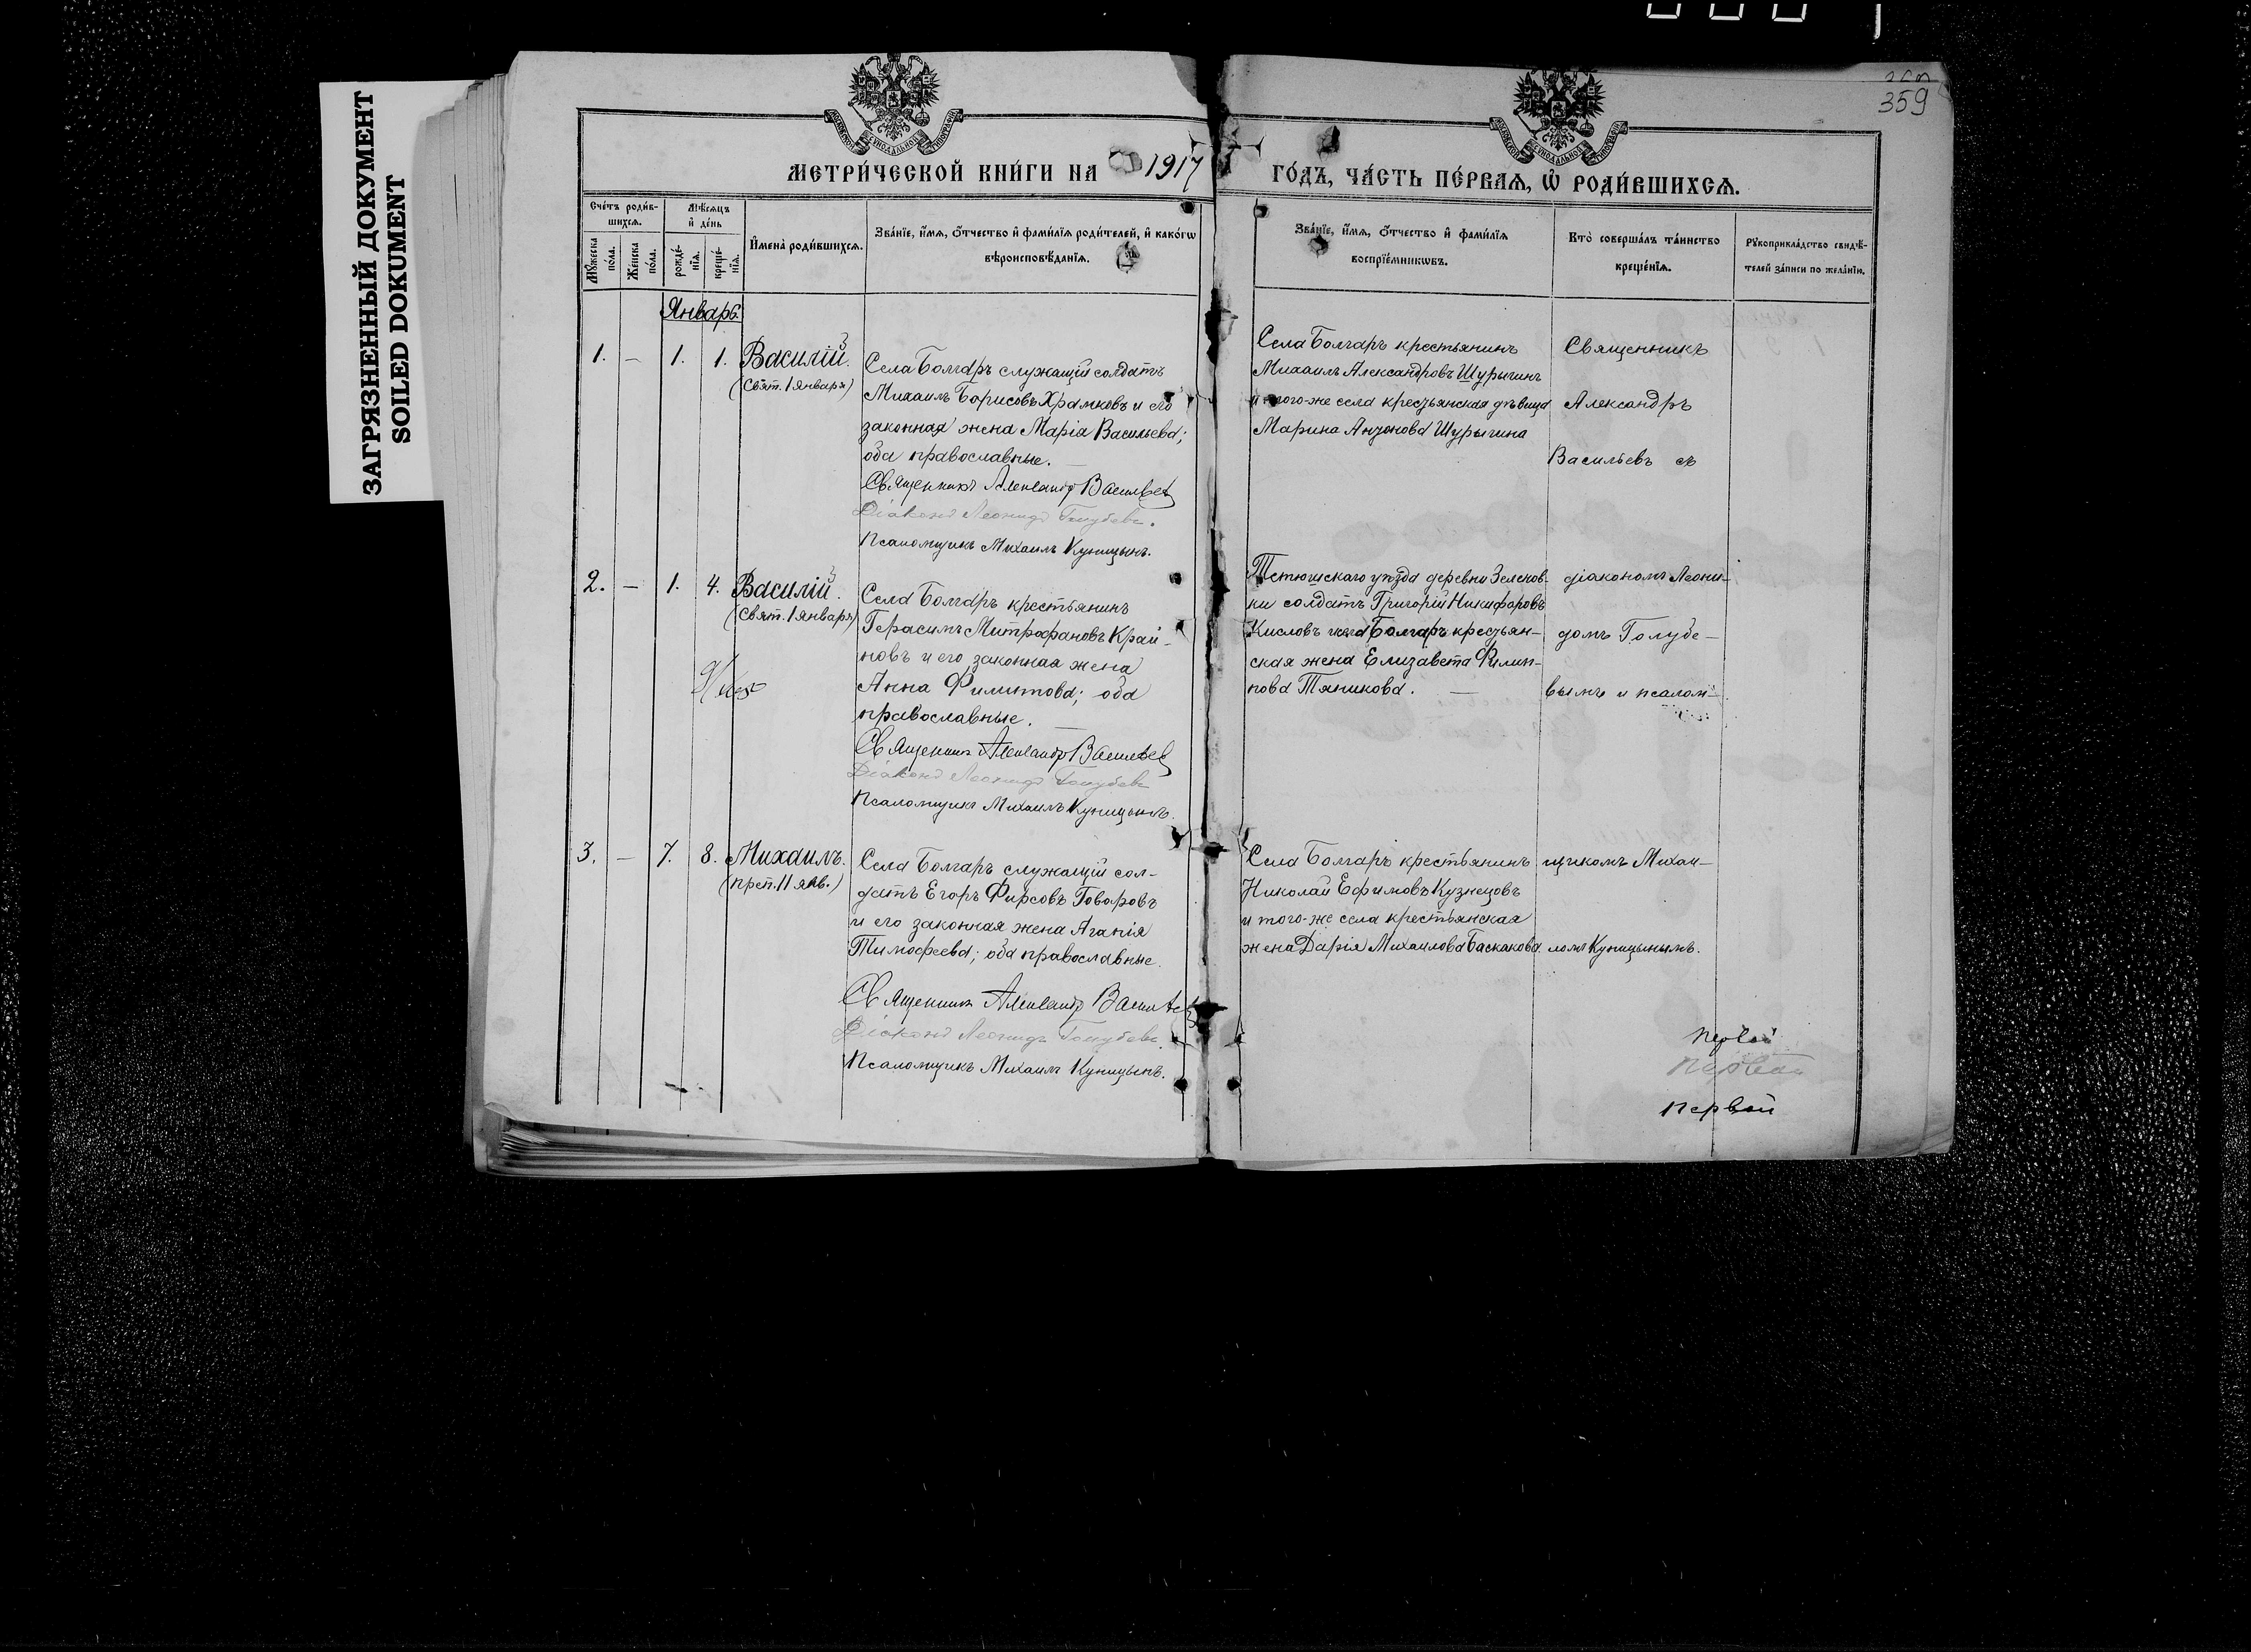 ЗАГРЯЗНЕННЫЙ ДОКУМЕНТ
SOILED DOKUMENT
359
МОСКОВСКОЙ СѴНОДАЛЬНОЙ ТИПОГРАФІИ
МОСКОВСКОЙ СѴНОДАЛЬНОЙ ТИПОГРАФІИ
МЕТРИ́ЧЕСКОЙ КНИ́ГИ НА 1917
ГО́ДЪ, ЧА́СТЬ ПЕ́РВАѦ, Ѽ РОДИ́ВШИХСѦ.
Сче́тъ роди́в-
шихсѧ.
Мꙋ́жеска
по́ла.
Же́нска
по́ла.
Мѣ́сѧцъ
и҆ де́нь
рожде́-
нїѧ.
креще́-
нїѧ.
И҆мена̀ роди́вшихсѧ.
Зва́нїе, и҆́мѧ, ѻ҆́тчество и҆ фами́лїѧ роди́телей, и҆ како́гѡ
вѣроисповѣ́данїѧ.
Зва́нїе, и҆́мѧ, ѻ҆́тчество и҆ фами́лїѧ
воспрїе́мникѡвъ.
Кто̀ соверша́лъ та́инство
креще́нїѧ.
Рꙋкоприкла́дство свидѣ́-
телей за́писи по жела́нїю.
Январь.
1. — 1. 1. Василій.
(Свят. 1 января)
Села Болгаръ служащій солдатъ
Михаилъ Борисовъ Храмковъ и его
законная жена Марія Васильева;
оба православные. —
Священникъ Александр Васильев
Діаконъ Леонидъ Голубевъ.
Псаломщикъ Михаилъ Куницынъ.
Села Болгаръ крестьянинъ
Михаилъ Александровъ Шурыгинъ
и того-же села крестьянская дѣвица
Марина Антонова Шурыгина
Священникъ
Александръ
Васильевъ съ
2. — 1. 4. Василій.
(Свят. 1 января)
Села Болгаръ крестьянинъ
Герасимъ Митрофановъ Край-
новъ и его законная жена
Анна Филиппова; оба
православные. —
Священникъ Александр Васильев
Діаконъ Леонидъ Голубевъ
Псаломщикъ Михаилъ Куницынъ.
Тетюшскаго уѣзда деревни Зеленов-
ки солдатъ Григорій Никифоровъ
Кисловъ и села Болгаръ крестьян-
ская жена Елизавета Филип-
пова Тяникова. —
діакономъ Леони-
домъ Голубе-
вымъ и псалом-
3. — 7. 8. Михаилъ.
(преп. 11 янв.)
Села Болгаръ служащій сол-
датъ Егоръ Фирсовъ Говоровъ
и его законная жена Агапія
Тимофеева; оба православные.
Священникъ Александр Васильев
Діаконъ Леонидъ Голубевъ.
Псаломщикъ Михаилъ Куницынъ.
Села Болгаръ крестьянинъ
Николай Ефимовъ Кузнецовъ
и того-же села крестьянская
жена Дарія Михаилова Баскакова
щикомъ Михаи-
ломъ Куницынымъ.
первой
первой